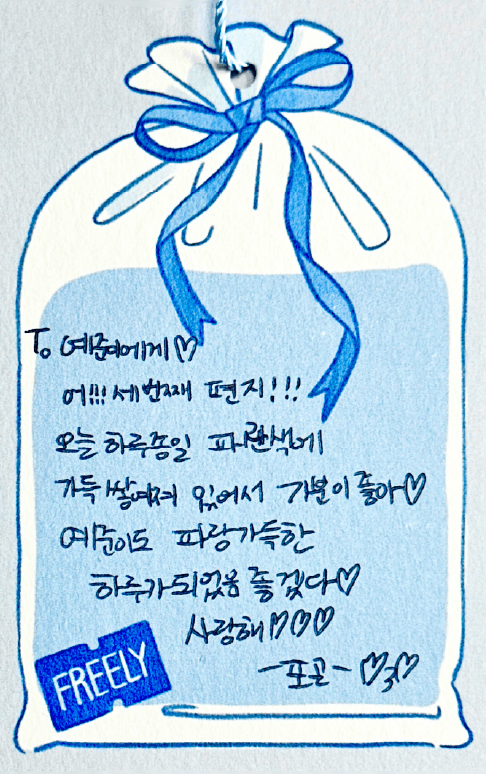 To 예준에게♡
어!!! 세번째 편지!!!
오늘 하루종일 파란색에
가득 쌓여져 있어서 기분이 좋아♡
예준이도 파랑가득한
하루가 되었음 좋겠다♡
사랑해♡♡♡
-포근- ♡3♡
FREELY